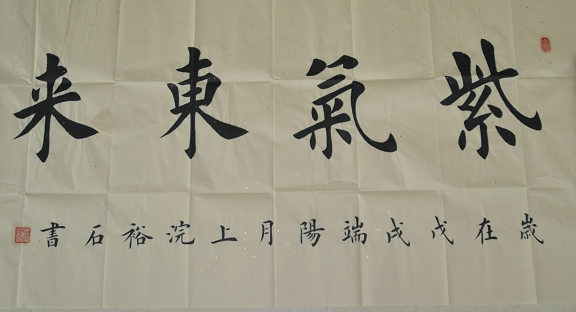 紫氣東来
歲在戊戌端陽月上浣裕石書